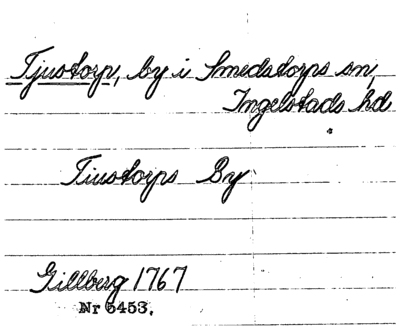 Tjustorp, by i Smedstorps sn,
Ingelstads hd
Tiustorps By
Gillberg 1767
Nr 6453.